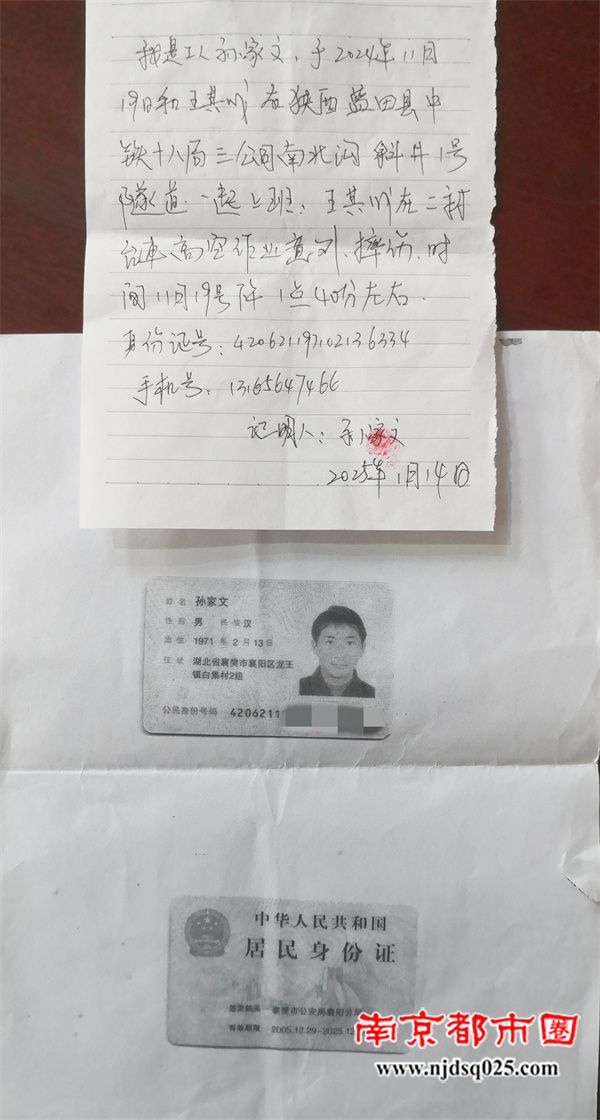 我是工人孙家文,于2024年11月
19日和王其川在狭西蓝田县中
铁十八局三公司南北沟斜井1号
隧道一起上班,王其川在二衬
台車高空作业意外摔伤.时
间11月19号 1点40份左右.
身份证号:420621197102136334
手机号:13165647466
证明人:孙家文
2025年1月14日
姓名 孙家文
性别 男 民族 汉
出生 1971年2月13日
住址 湖北省襄樊市襄阳区龙王
镇白集村2组
公民身份号码 4206211
中华人民共和国
居民身份证
签发机关 襄樊市公安局襄阳分局
有效期限 2005.12.29-2025.12
南京都市圈
www.njdsq025.com